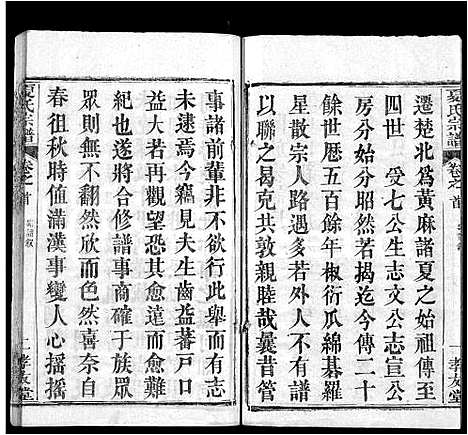 夏氏宗譜
卷之首
一 孝友堂
遷楚北為黃麻諸夏之始祖傳至
四世 受七公生志文公志宣公
房分始繩繩矣迄今傳二十
餘世歷五百餘年椒衍瓜綿碁羅
星散宗人路遇多若外人不有譜
以聯之其何以敦親睦哉曩昔管
事諸前輩非不欲行此舉而有志
未逮焉今軀見夫生齒益蕃戶口
益大甚懼望恐其愈遠而愈失其
紀也遂將合修譜事商確于族顧
眾則無不翻然改而然喜奈自
春徂秋時值滿漢事變人心搖搖
夏氏宗譜
卷之首
二 孝友堂